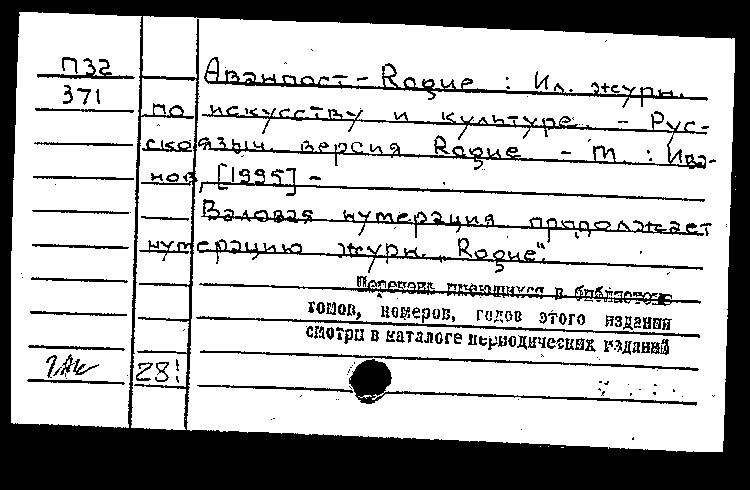 П32
371
Аванпост - Rogue : Ил. журн.
по искусству и культуре. - Рус-
скоязыч. версия Rogue - М. : Ива-
нов, [1995] -
Валовая нумерация продолжает
нумерацию журн. „Rogue“.
Перечень имеющихся в библиотеке
томов, номеров, годов этого издания
смотри в каталоге периодических изданий
281